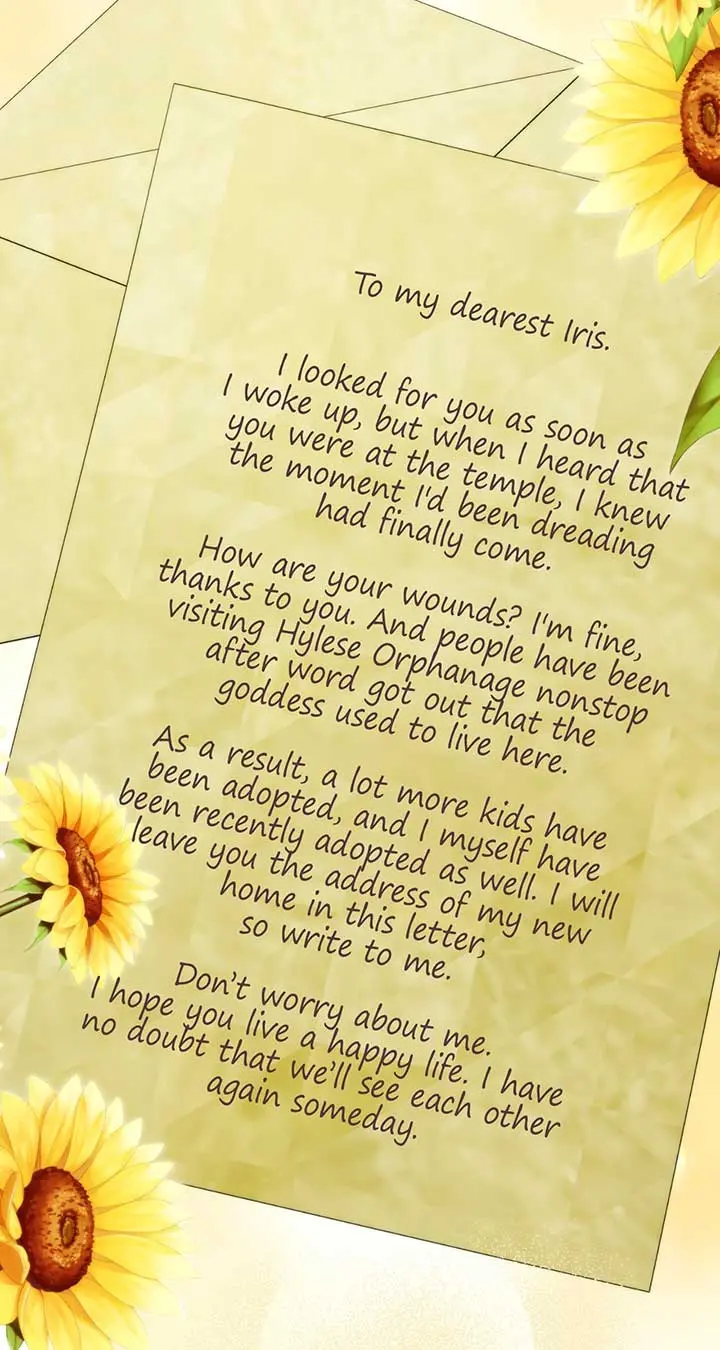 To my dearest Iris.
I looked for you as soon as
I woke up, but when I heard that
you were at the temple, I knew
the moment I'd been dreading
had finally come.
How are your wounds? I'm fine,
thanks to you. And people have been
visiting Hylese Orphanage nonstop
after word got out that the
goddess used to live here.
As a result, a lot more kids have
been adopted, and I myself have
been recently adopted as well. I will
leave you the address of my new
home in this letter,
so write to me.
Don't worry about me.
I hope you live a happy life. I have
no doubt that we'll see each other
again someday.